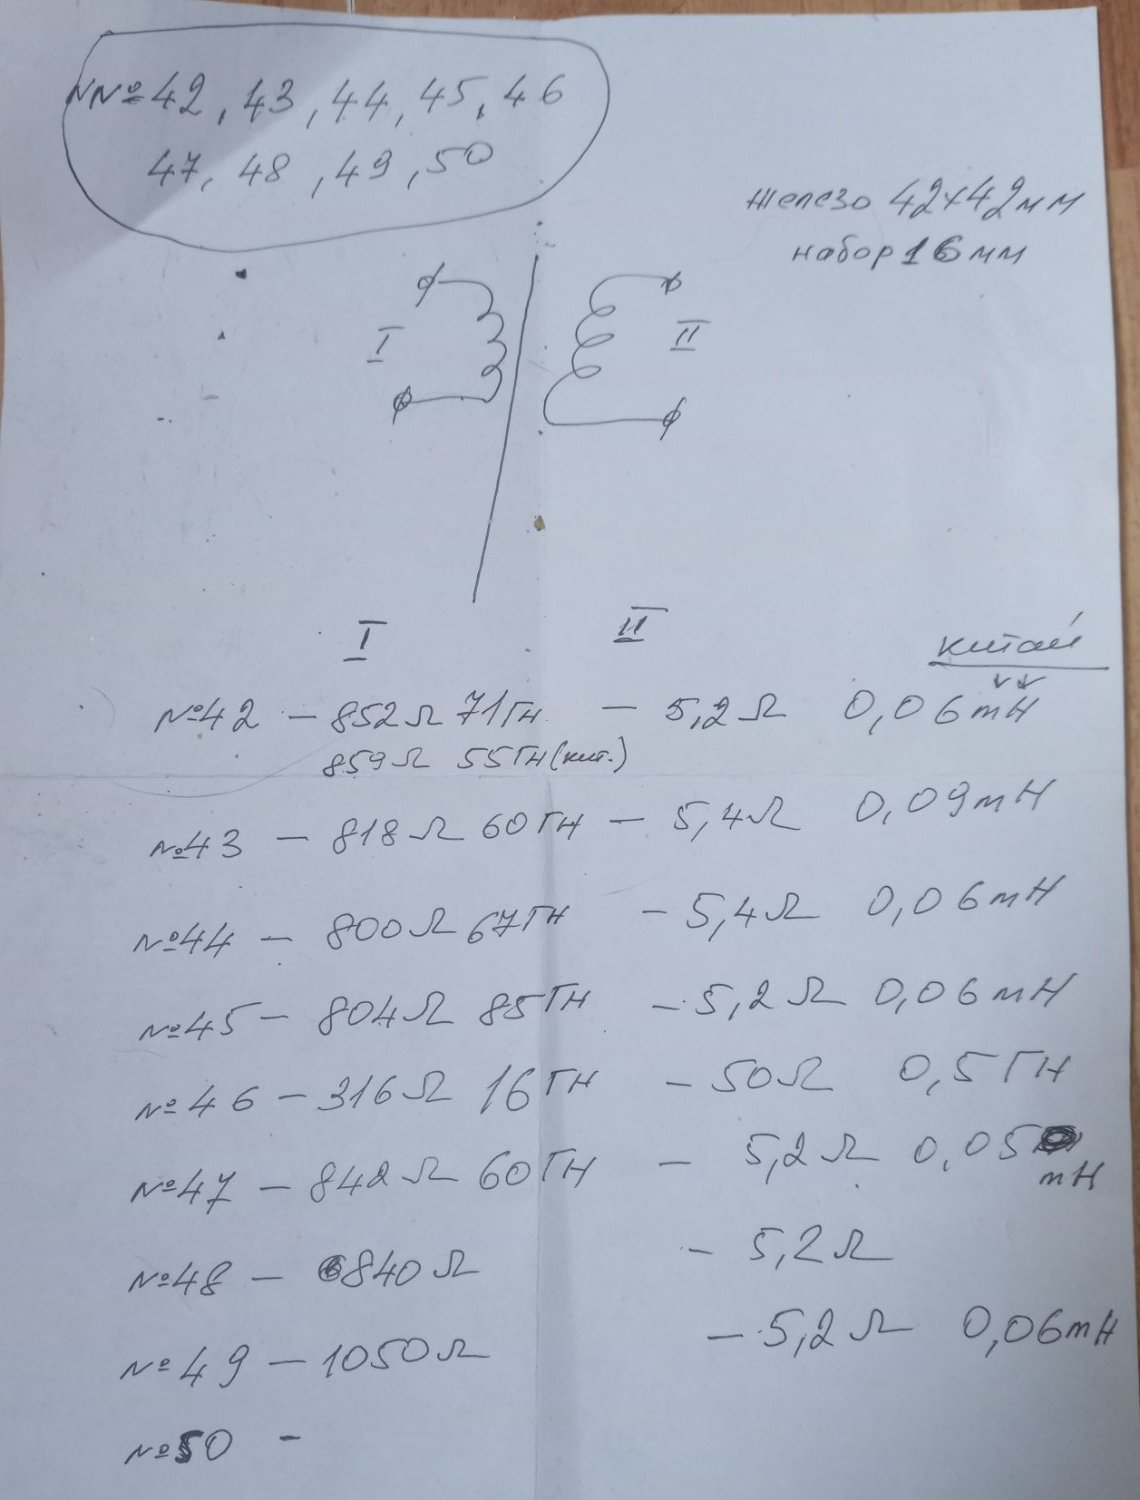 №№ 42, 43, 44, 45, 46
47, 48, 49, 50
Железо 42x42мм
набор 16мм
I II
I II
Китай
№42 – 852Ω 71Гн – 5,2Ω 0,06mH
859Ω 55Гн (кит.)
№43 – 818Ω 60Гн – 5,4Ω 0,09mH
№44 – 800Ω 67Гн – 5,4Ω 0,06mH
№45 – 804Ω 85Гн – 5,2Ω 0,06mH
№46 – 316Ω 16Гн – 50Ω 0,5Гн
№47 – 842Ω 60Гн – 5,2Ω 0,05
mH
№48 – 840Ω – 5,2Ω
№49 – 1050Ω – 5,2Ω 0,06mH
№50 –